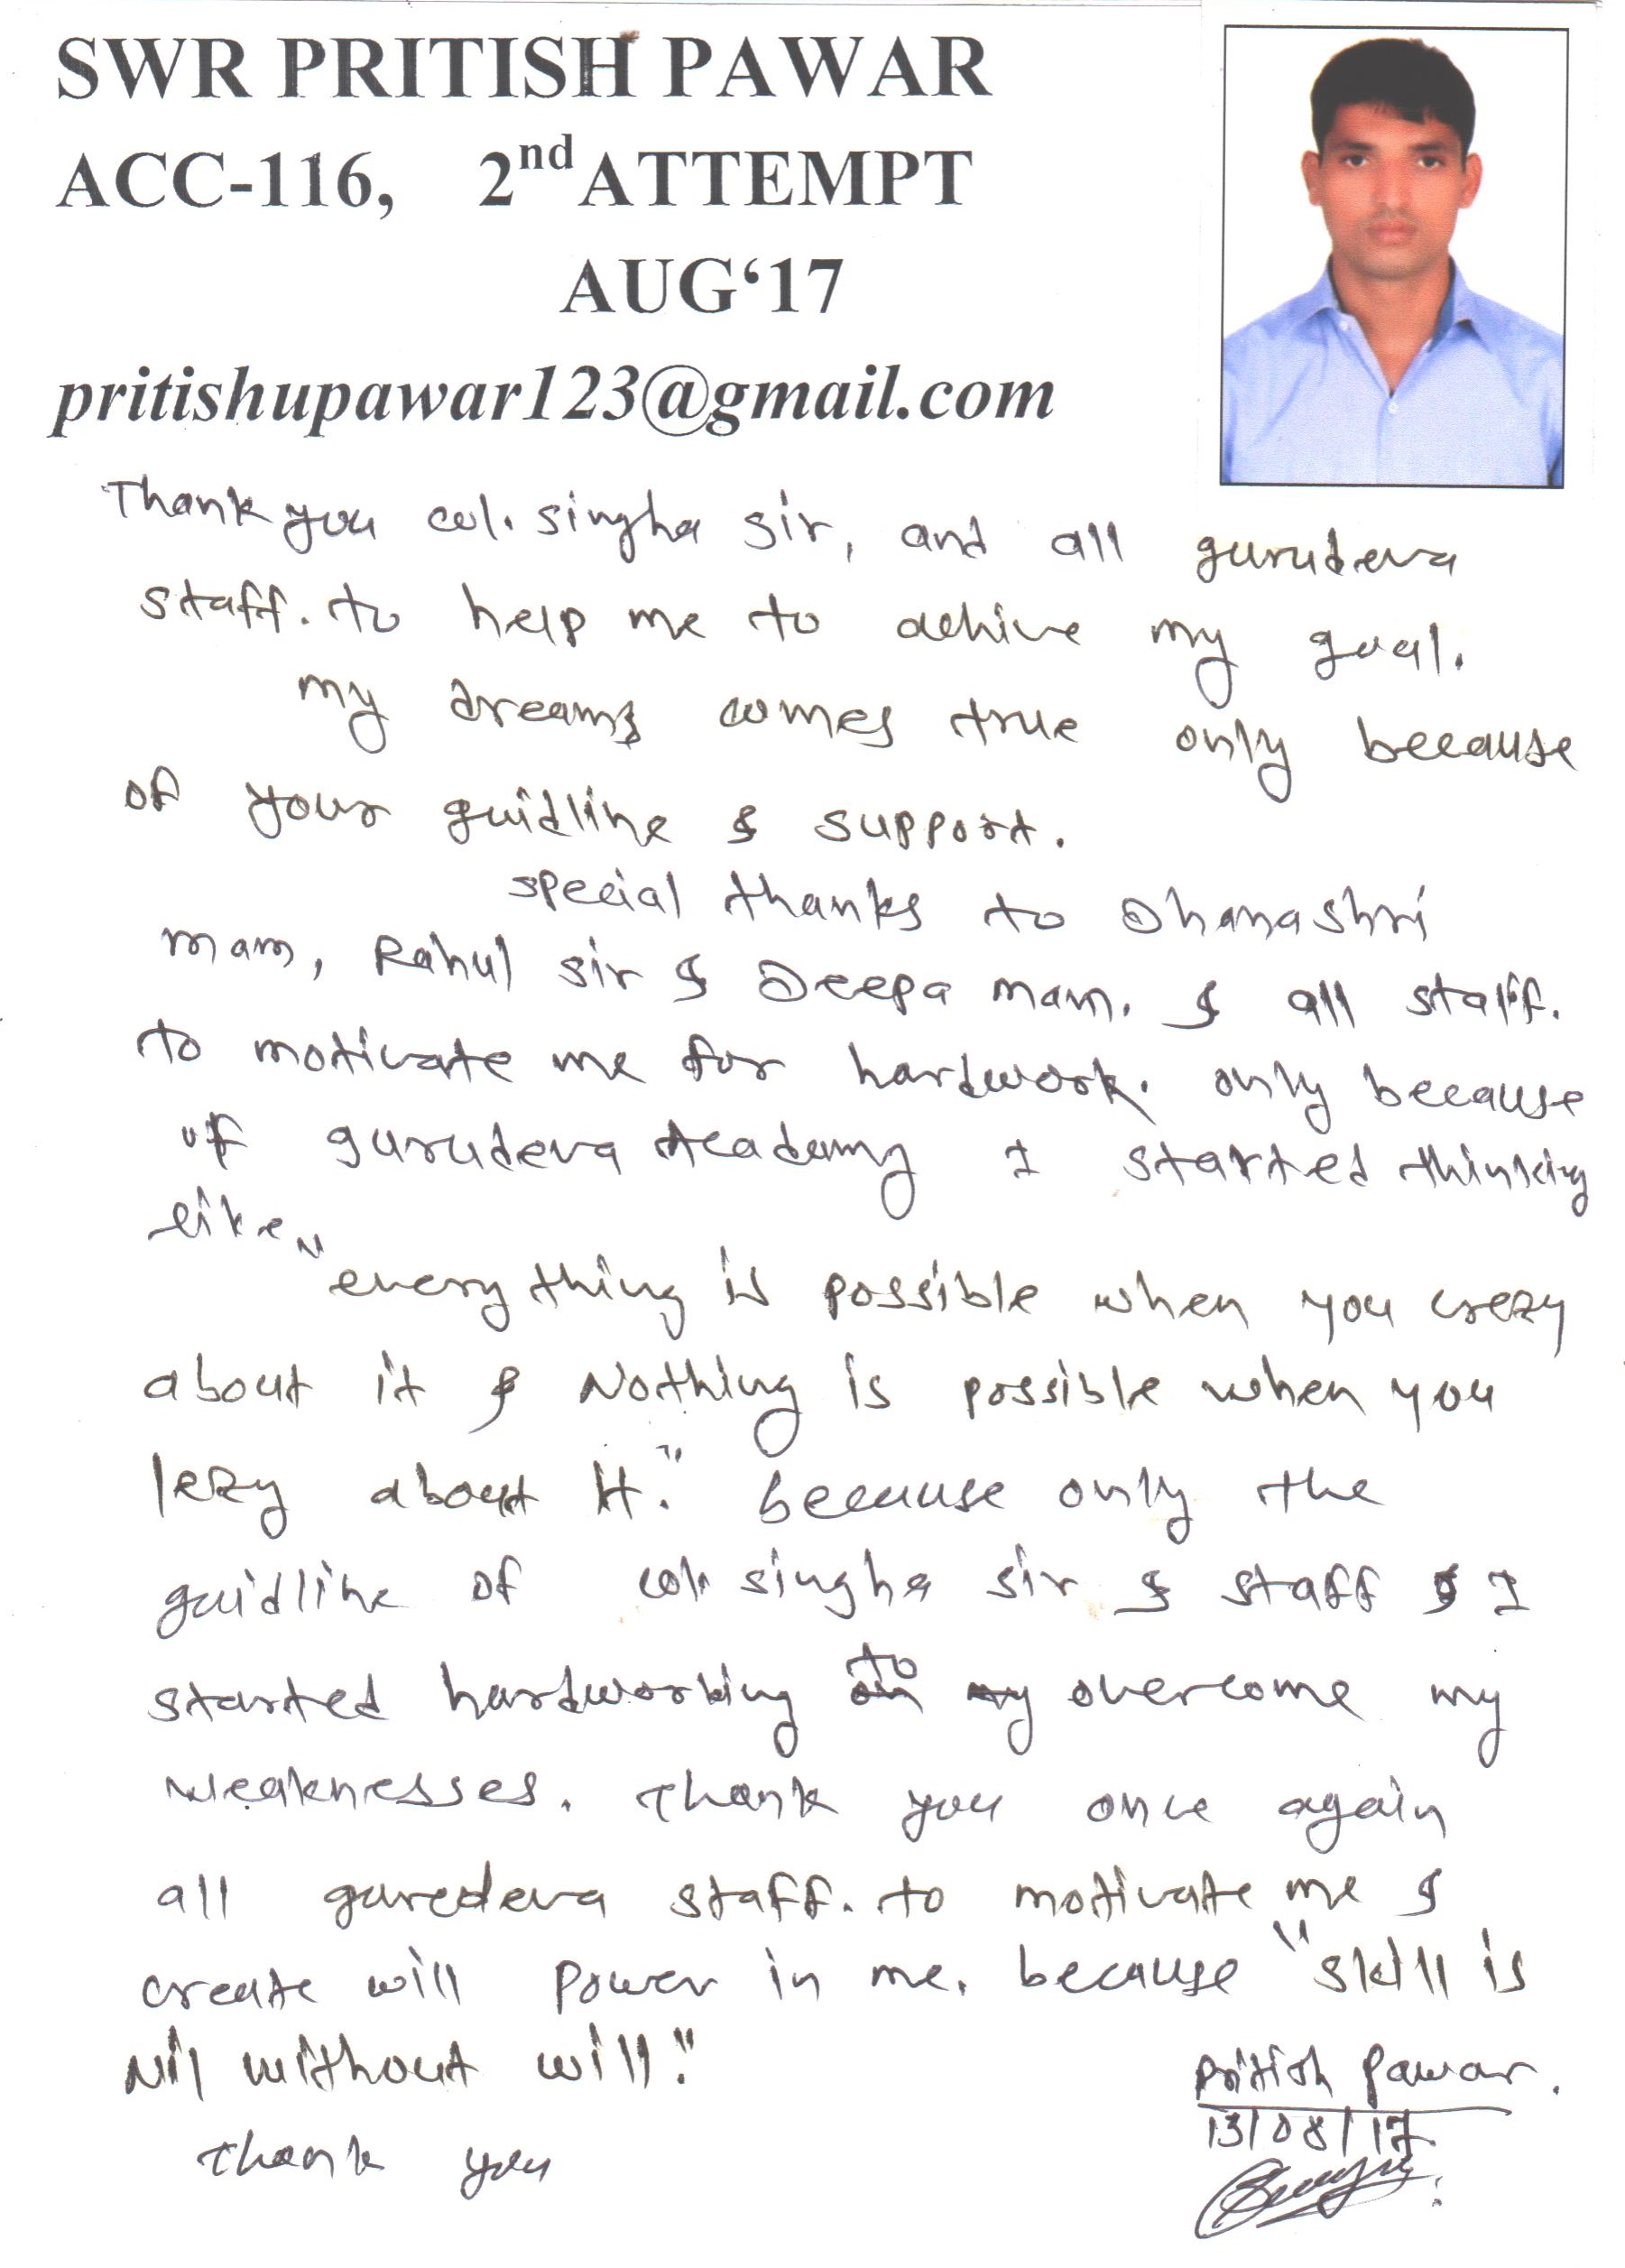 SWR PRITISH PAWAR
ACC-116, 2nd ATTEMPT
AUG‘17
pritishupawar123@gmail.com
Thank you col. singha sir, and all gurudeva
staff. to help me to achive my goal.
my dreams comes true only because
of your guidline & support.
special thanks to Dhanashri
mam, Rahul sir & Deepa mam. & all staff.
to motivate me for hardwork. only because
of gurudeva Academy I started thinking
like,
"everything is possible when you crezy
about it & Nothing is possible when you
lezy about it." because only the
guidline of col. singha sir & staff & I
started hardworking to overcome my
weaknesses. Thank you once again
all guredeva staff. to motivate me &
create will power in me. because "skill is
Nil without will."
Thank you
Pritish Pawar.
13/08/17